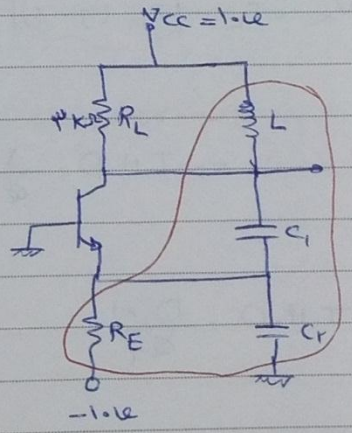 VCC = ۱۰v
۳kΩ R_L
L
C₁
R_E
C۲
-۱۰v